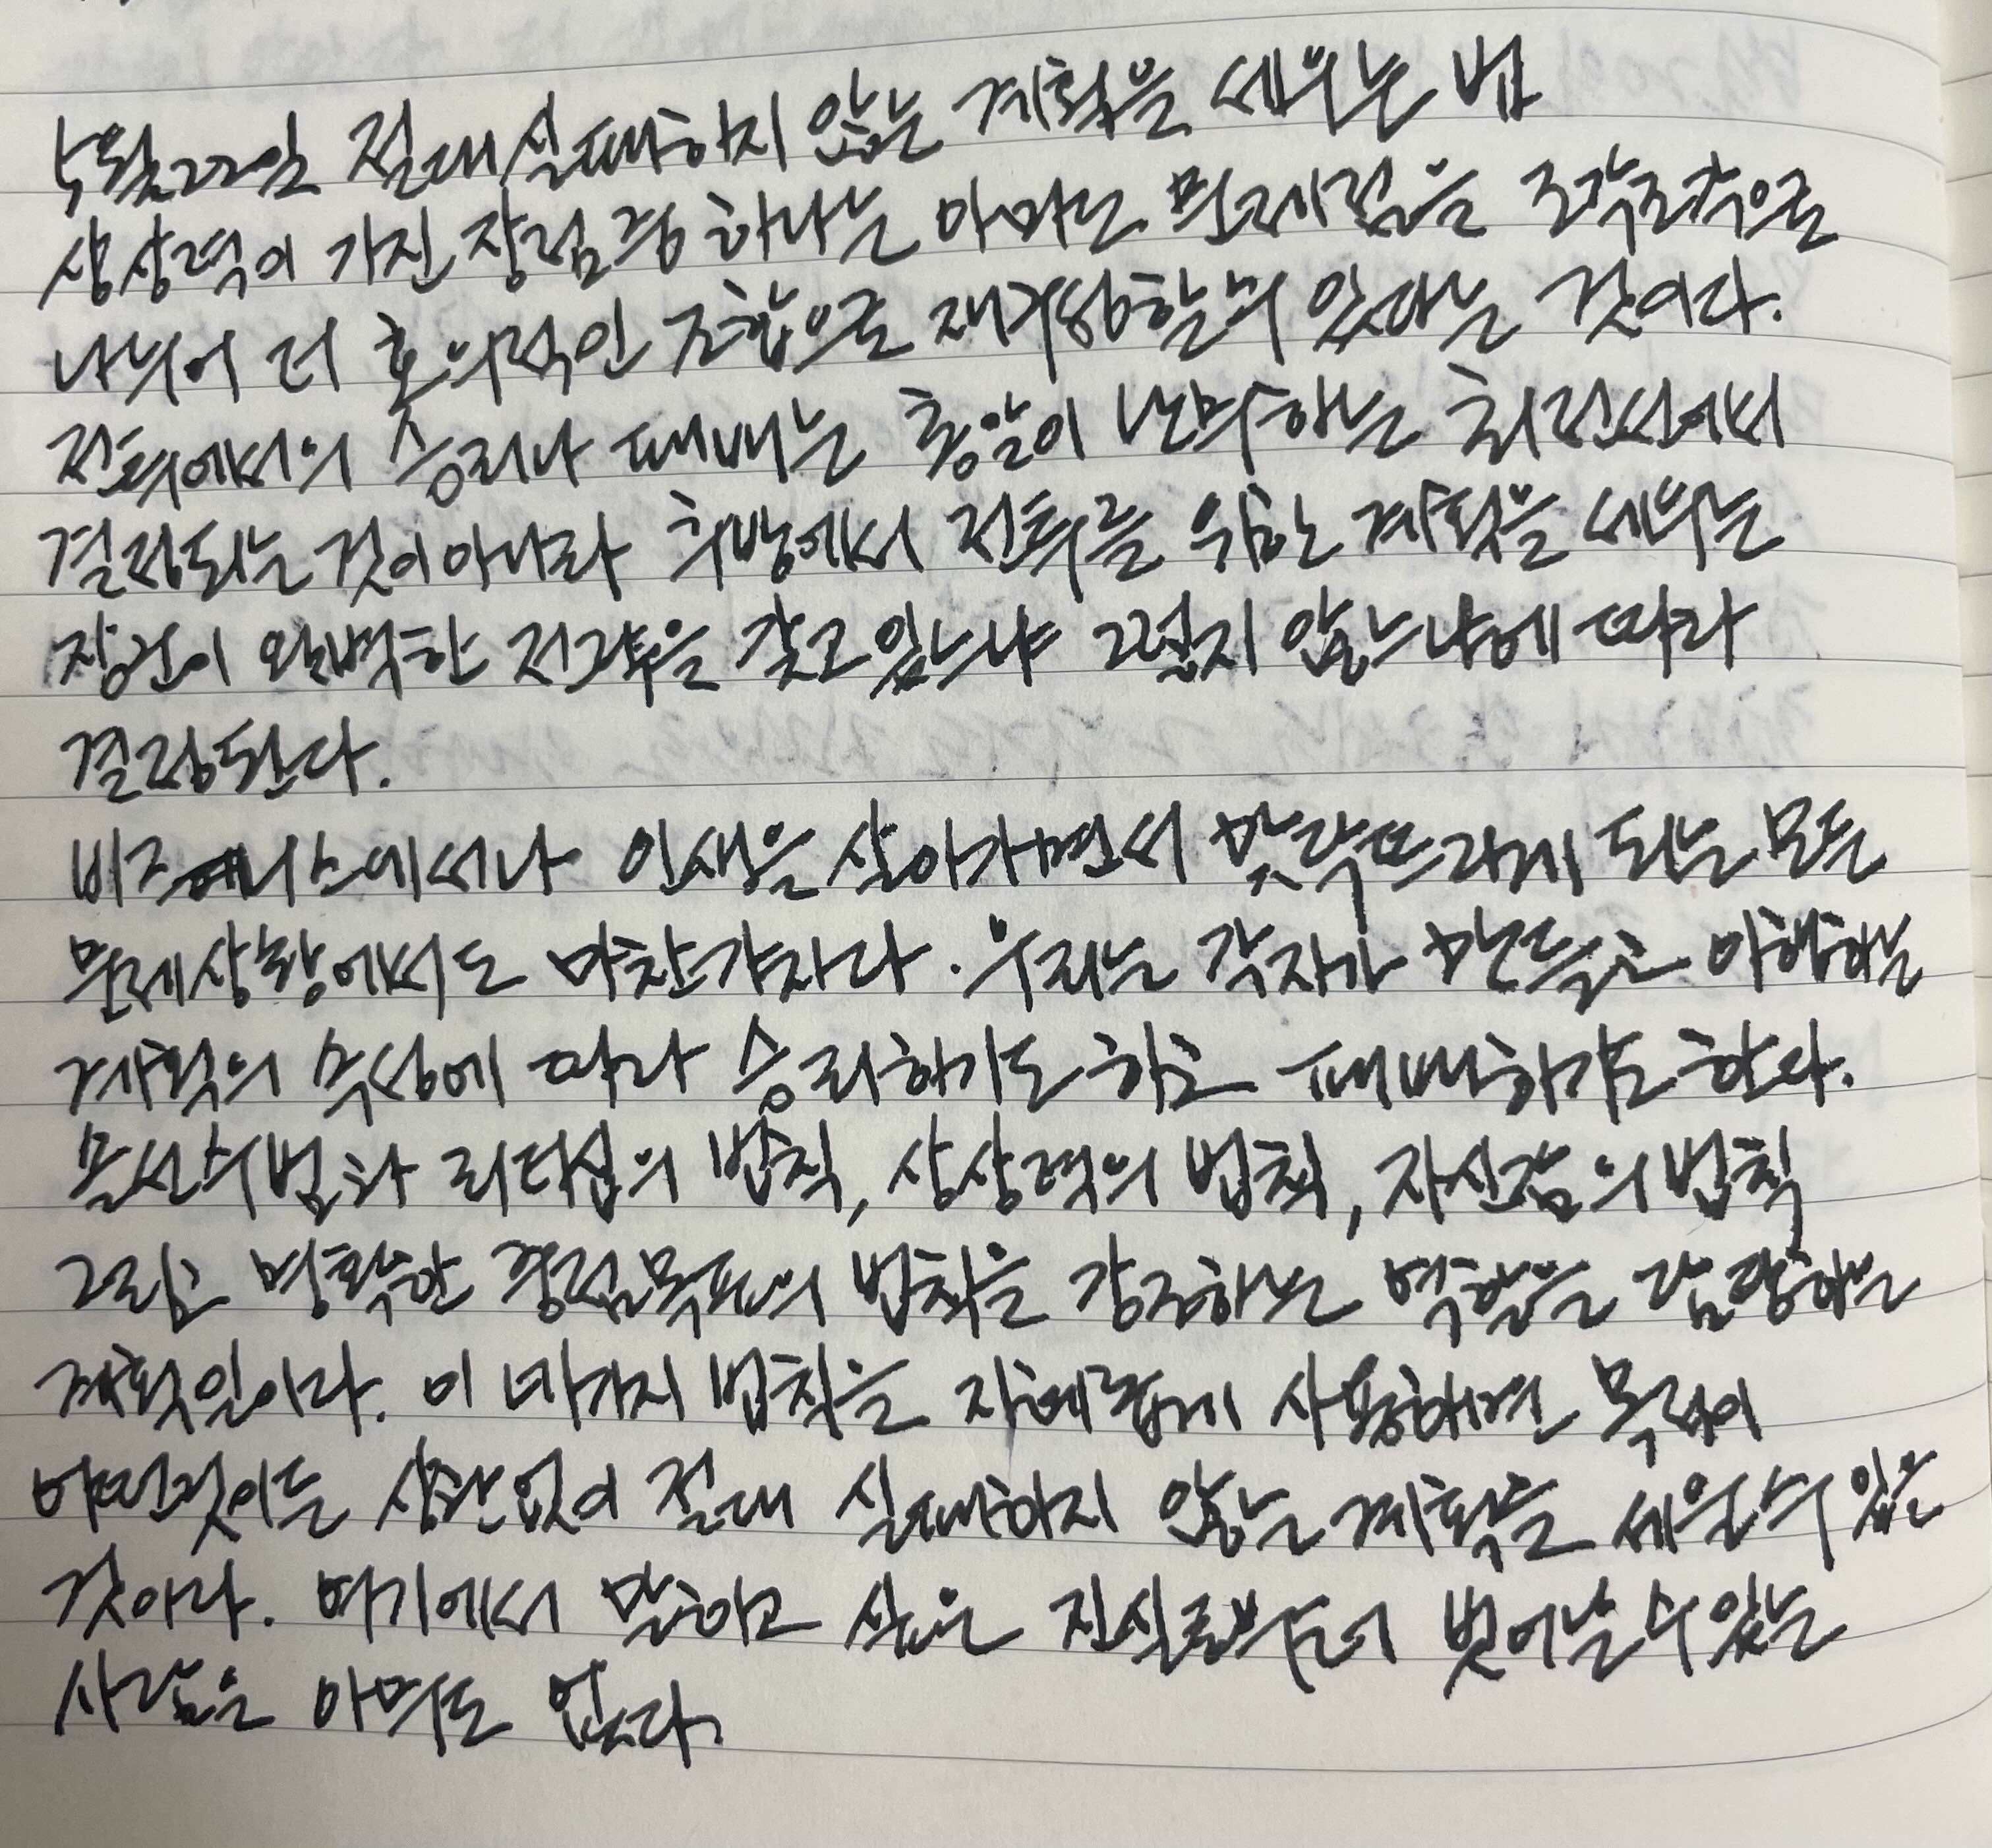 5월22일 절대실패하지 않는 계획을 세우는 법
상상력이 가진 장점중 하나는 아마도 문제점을 조각조각으로
나뉘어 더 호의적인 조합으로 재구성할수 있다는 것이다.
전투에서의 승리나 패배는 총알이 난무하는 최전선에서
결정되는 것이 아니라 후방에서 전투를 위한 계획을 세우는
장군이 완벽한 전략을 갖고 있느냐 그렇지 않느냐에 따라
결정된다.
비즈니스에서나 인생을 살아가면서 맞닥뜨리게 되는 모든
문제상황에서도 마찬가지다. 우리는 각자가 만들고 이행하는
계획의 속성에 따라 승리하기도 하고 패배하기도 한다.
리더십의 법칙, 상상력의 법칙, 자신감의 법칙
그리고 명확한 중점목표의 법칙을 강조하는 역할을 담당하는
계획일이다. 이 네가지 법칙을 지혜롭게 사용하면 목적이
어떤것이든 상관없이 절대 실패하지 않는 계획을 세울수 있는
것이다. 여기에서 말하고 싶은 진실로부터 벗어날 수 있는
사람은 아무도 없다.